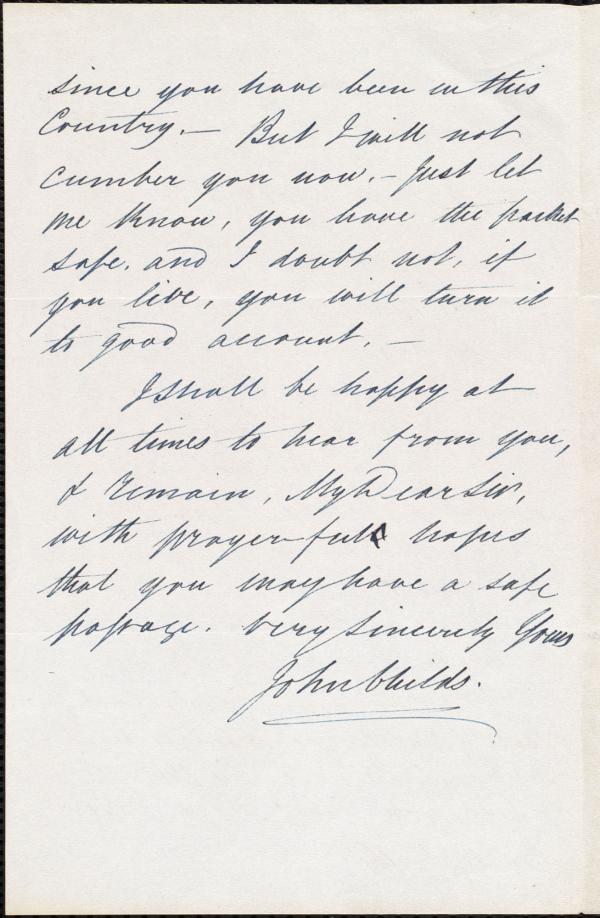 since you have been in this
Country. — But I will not
cumber you now. — Just let
me know, you have the packet
safe. and I doubt not, if
you live, you will turn it
to good account. —
I shall be happy at
all times to hear from you,
& remain, My Dear Sir,
with prayer-full hopes
that you may have a safe
passage. Very Sincerely Yours
John Childs.